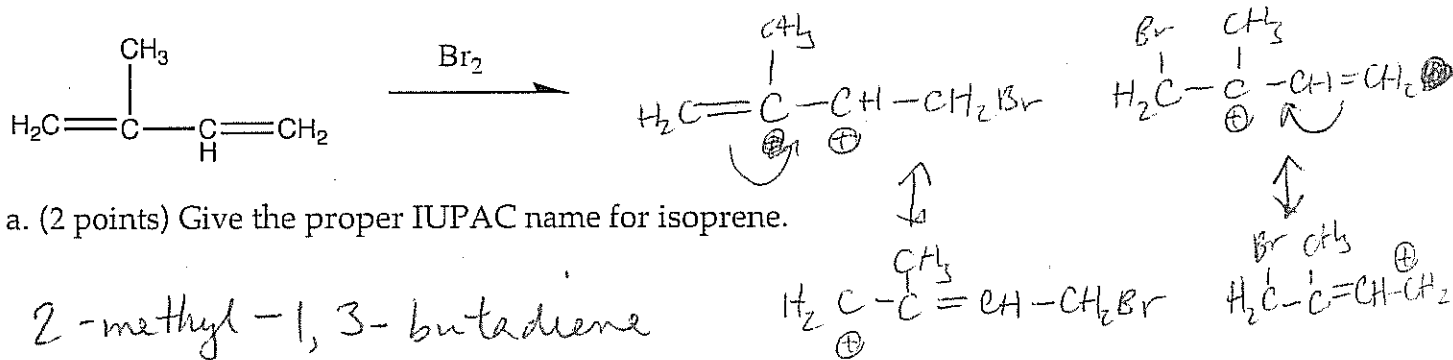 CH₃
Br₂
H₂C=C-C=CH₂
H
CH₃
H₂C=C-CH-CH₂Br
⊕
Br CH₃
H₂C-C-CH=CH₂
⊕
a. (2 points) Give the proper IUPAC name for isoprene.
2-methyl-1,3-butadiene
CH₃
H₂C-C=CH-CH₂Br
⊕
Br CH₃ ⊕
H₂C-C=CH-CH₂